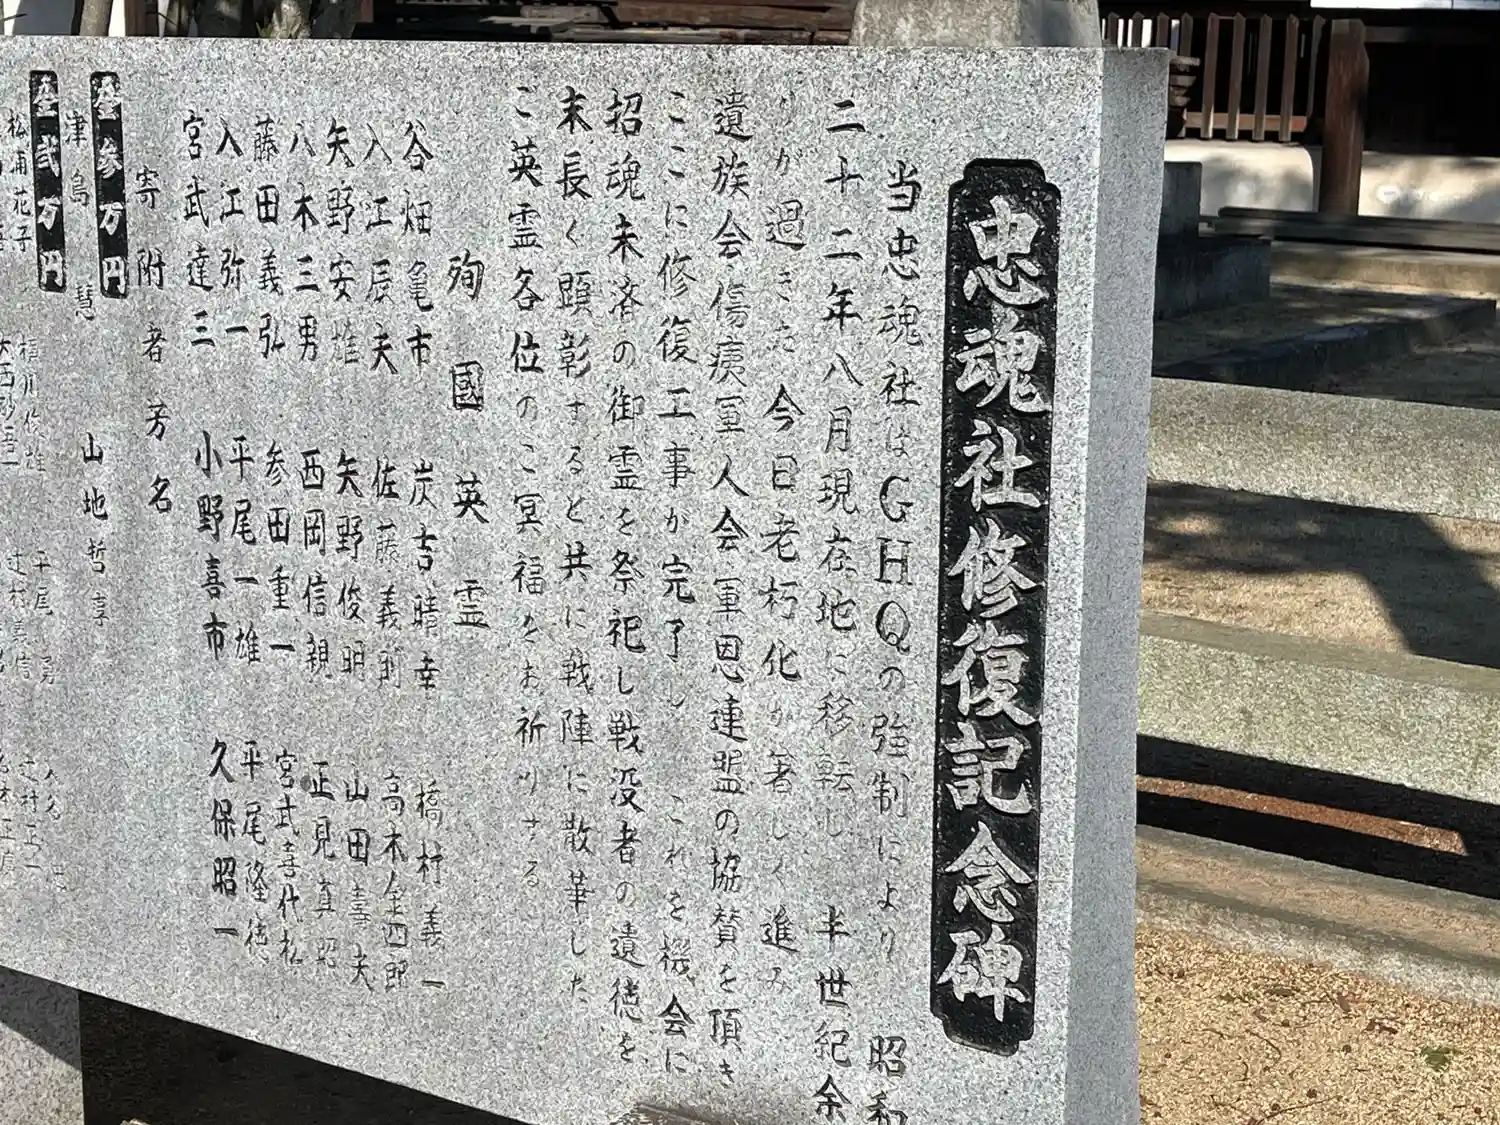 忠魂社修復記念碑
当忠魂社はGHQの強制により 昭和
二十二年八月現在地に移転し 半世紀余
りが過ぎた今日老朽化が著しく進み
遺族会傷痍軍人会軍恩連盟の協賛を頂き
ここに修復工事が完了し これを機会に
招魂未済の御霊を祭祀し戦没者の遺徳を
末長く顕彰すると共に戦陣に散華した
ご英霊各位のご冥福をお祈りする
殉國英霊
谷畑亀市 炭吉晴幸 橋村義一
入江辰夫 佐藤義則 高木金四郎
矢野安雄 矢野俊明 山田壽夫
八木三男 西岡信親 正見真昭
藤田義弘 参田重一 宮武喜代松
入江弥一 平尾一雄 平尾隆徳
宮武達三 小野喜市 久保昭一
寄附者芳名
金参万円
津島慧 山地哲享
金弐万円
松浦花子